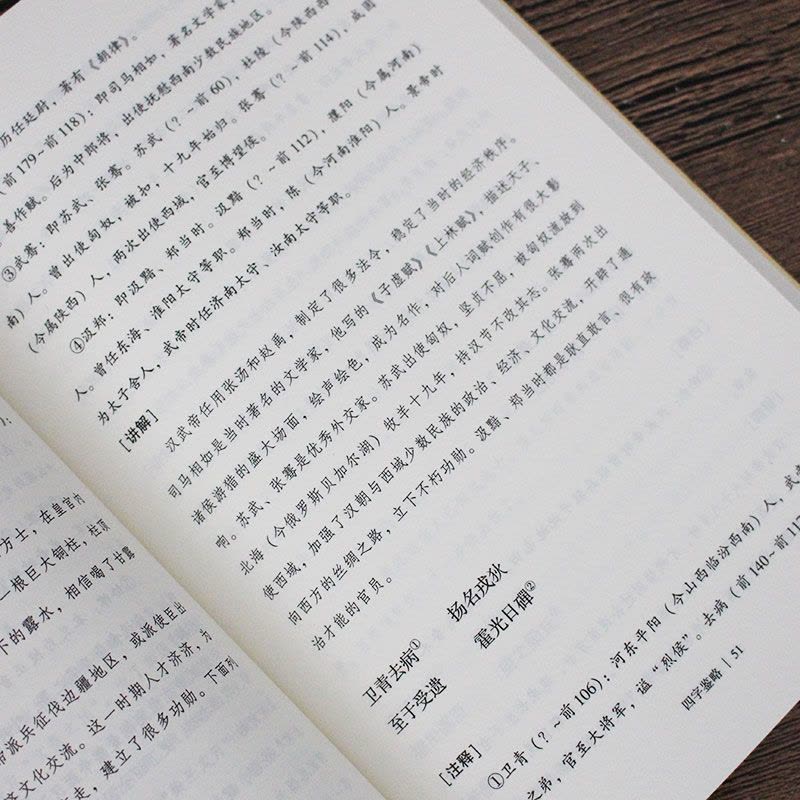 方士，在皇宫内
一根巨大铜柱，柱顶
下的露水，相信喝了甘露
帝派兵征伐边疆地区，或派使臣出
文化交流。这一时期人才济济，为
走，建立了很多功勋。下面列
历任廷尉，著有《朝律》。
（前179~前118）：即司马相如，著名文学家，
善作赋。后为中郎将，出使抚慰西南少数民族地区。
③武骞：即苏武、张骞。苏武（？~前60），杜陵（今陕西西
南）人。曾出使匈奴，被扣，十九年始归。张骞（？~前114），成固
（今属陕西）人，两次出使西域，官至博望侯。
④汲郑：即汲黯、郑当时。汲黯（？~前112），濮阳（今属河南）
人。曾任东海、淮阳太守等职。郑当时，陈（今河南淮阳）人。景帝时
为太子舍人，武帝时任济南太守、汝南太守等职。
[讲解]
汉武帝任用张汤和赵禹，制定了很多法令，稳定了当时的经济秩序。
司马相如是当时著名的文学家，他写的《子虚赋》《上林赋》，描述天子、
诸侯游猎的盛大场面，绘声绘色，成为名作，对后人词赋创作有很大影
响。苏武、张骞是优秀外交家。苏武出使匈奴，坚贞不屈，被匈奴流放到
北海（今俄罗斯贝加尔湖）牧羊十九年，持汉节不改其志。张骞两次出
使西域，加强了汉朝与西域少数民族的政治、经济、文化交流，开辟了通
向西方的丝绸之路，立下不朽功勋。汲黯、郑当时都是耿直敢言、很有政
治才能的官员。
卫青去病① 扬名戎狄
至于受遗 霍光日磾②
[注释]
①卫青（？~前106）：河东平阳（今山西临汾西南）人，武
之弟，官至大将军，谥“烈侯”。去病（前140~前11
四字鉴略 | 51